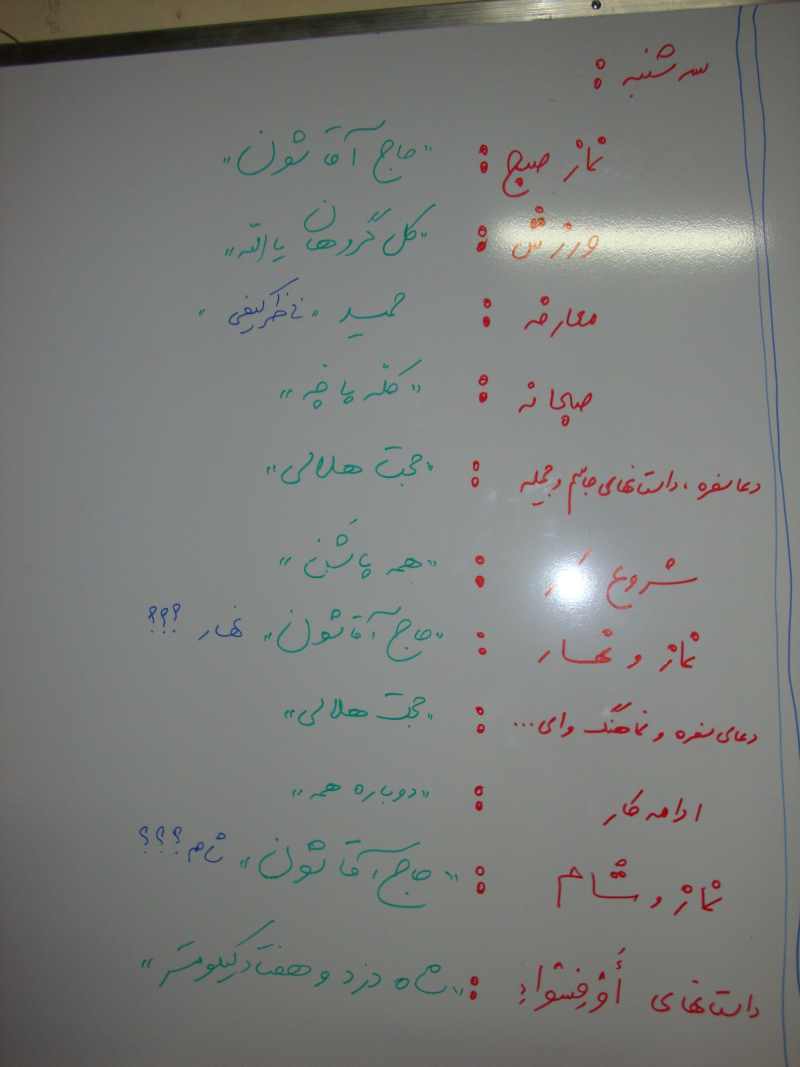 سه شنبه :
نماز صبح : «حاج آقا شون»
ورزش : «کل گردهان یا الله»
معارفه : حمید «ناظر کیفی»
صبحانه : «کله پاچه»
دعا سفره ، داستانهای جاسم و جمیله : «حجت هلالی»
شروع کار : «همه پاشن»
نماز و نهار : «حاج آقا شون» نهار ؟؟؟
دعای سفره و نماهنگ وای... : «حجت هلالی»
ادامه کار : «دوباره همه»
نماز و شام : «حاج آقا شون» شام ؟؟؟
داستانهای : «شاه دزد و هفتاد کیلومتر»